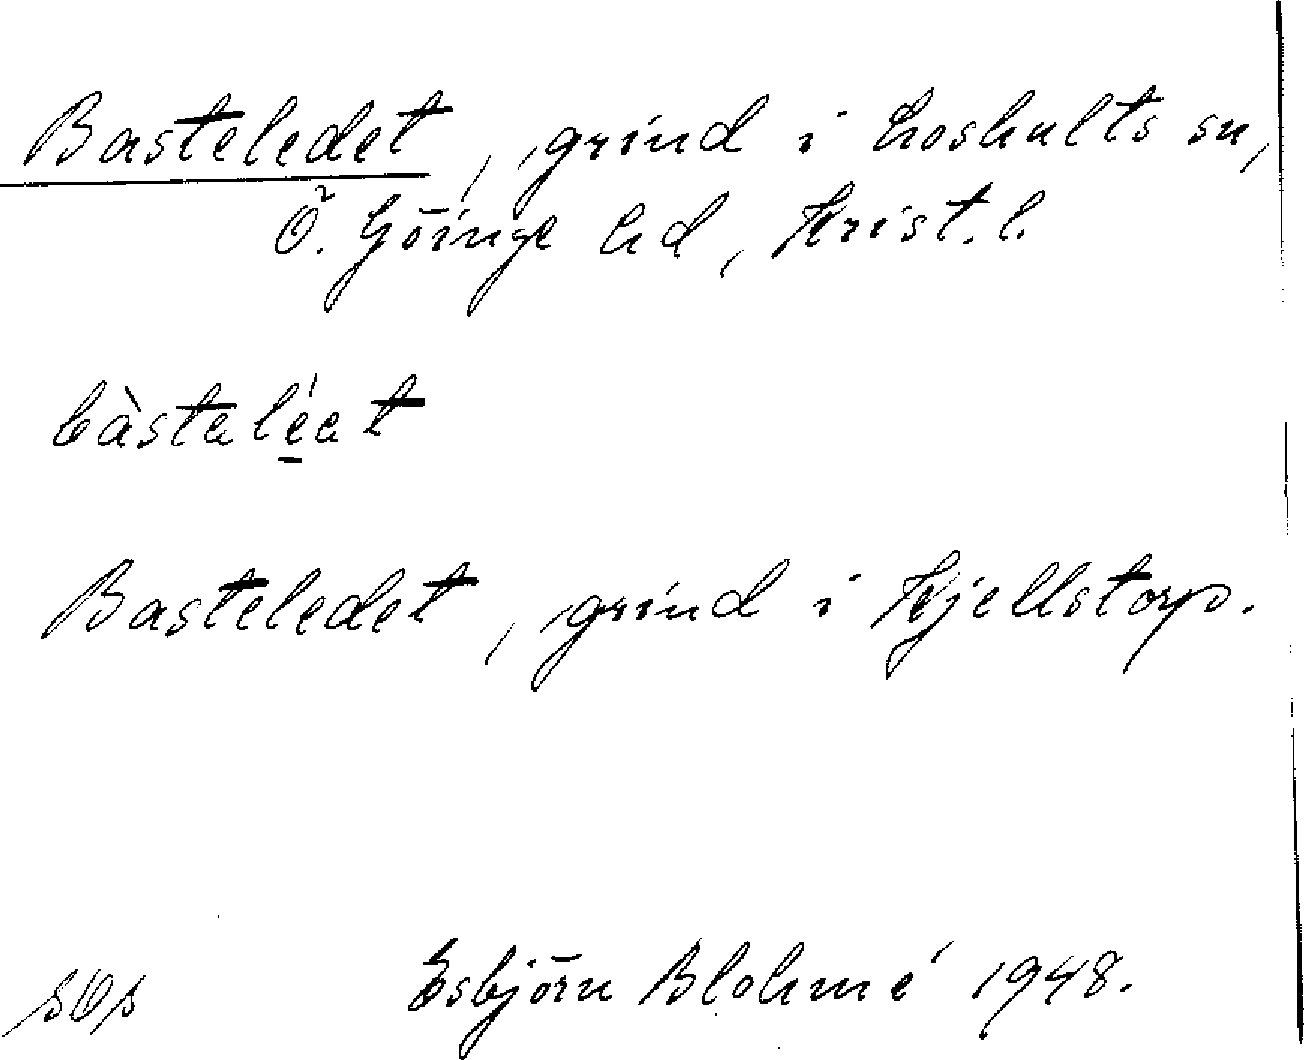 Basteledet, grind i Loshults sn,
Ö. Göinge hd, Krist. l.
bàstalé̱at
Basteledet, grind i Kjellstorp.
Esbjörn Blohmé 1948.